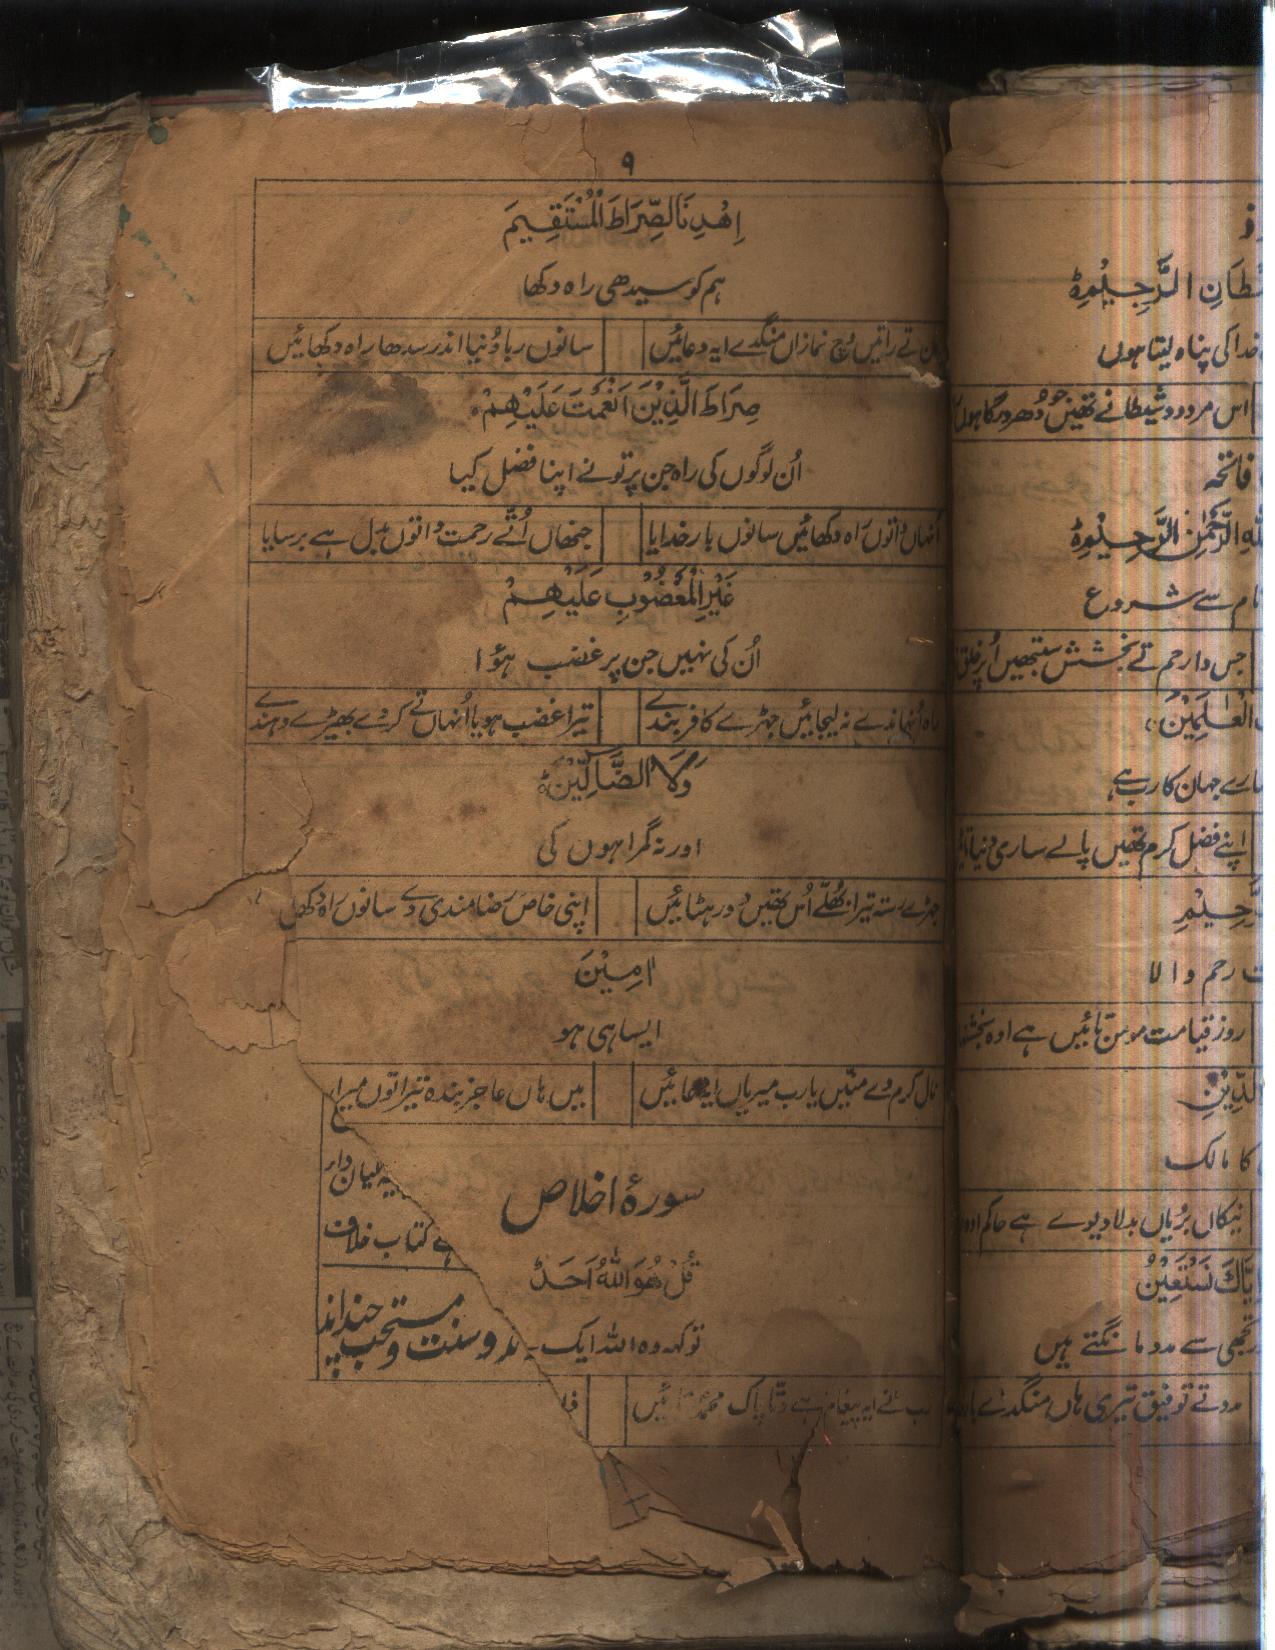 ۹
اِهْدِنَا الصِّرَاطَ الْمُسْتَقِيمَ
ہم کو سیدھی راہ دکھا
تے راتیں وچ نمازاں منگدے ایہ دعائیں سانوں ربا دُنیا اندر سدھا راہ دکھائیں
صِرَاطَ الَّذِيْنَ اَنْعَمْتَ عَلَيْهِمْ
اُن لوگوں کی راہ جن پر تو نے اپنا فضل کیا
انہاں داتوں راہ دکھائیں سانوں بار خدایا جنھاں اُتّے رحمت داتوں مِل ہے برسایا
غَيْرِ الْمَغْضُوبِ عَلَيْهِمْ
اُن کی نہیں جن پر غضب ہؤا
راہ اُنہاندے نہ لیجائیں جہڑے کافر بندے تیرا غضب ہویا اُنہاں تے کردے بھیڑے دہندے
وَلَا الضَّالِّيْنَ
اور نہ گمراہوں کی
جہڑے رستہ تیرا بُھلّے اُس تھیں دور ہٹائیں اپنی خاص رضامندی دے سانوں راہ دکھل
اٰمِيْنَ
ایسا ہی ہو
نال کرم دے منّیں یارب میریاں ایہ دعائیں میں ہاں عاجز بندہ تیرا توں میرا
سورۂ اخلاص
قُلْ هُوَ اللّٰهُ اَحَدٌ
تو کہہ وہ اللہ ایک
رب نے ایہ پیغام ہے دتّا پاک محمدؐ تائیں
دار
ہے کتاب خلاف
و سنت و مستحب چند اند
شَيْطَانِ الرَّجِيْمِ
خدا کی پناہ لیتا ہوں
اس مردود شیطانے تھیں جو دُھر درگاہوں
فاتحہ
اللهِ الرَّحْمٰنِ الرَّحِيْمِ
نام سے شروع
جس دا رحم تے بخشش سبھیں اُپر خلق
الْعٰلَمِيْنَ
سارے جہان کا رب ہے
اپنے فضل کرم تھیں پالے ساری دنیا تائیں
الرَّحِيْمِ
رحم والا
روز قیامت مومن تائیں ہے اوہ بخشن
الدِّيْنِ
کا مالک
نیکاں بُریاں بدلا دیوے ہے حاکم اوہ
اِيَّاكَ نَسْتَعِيْنُ
تجھی سے مدد مانگتے ہیں
مدد تے توفیق تیری ہاں منگدے